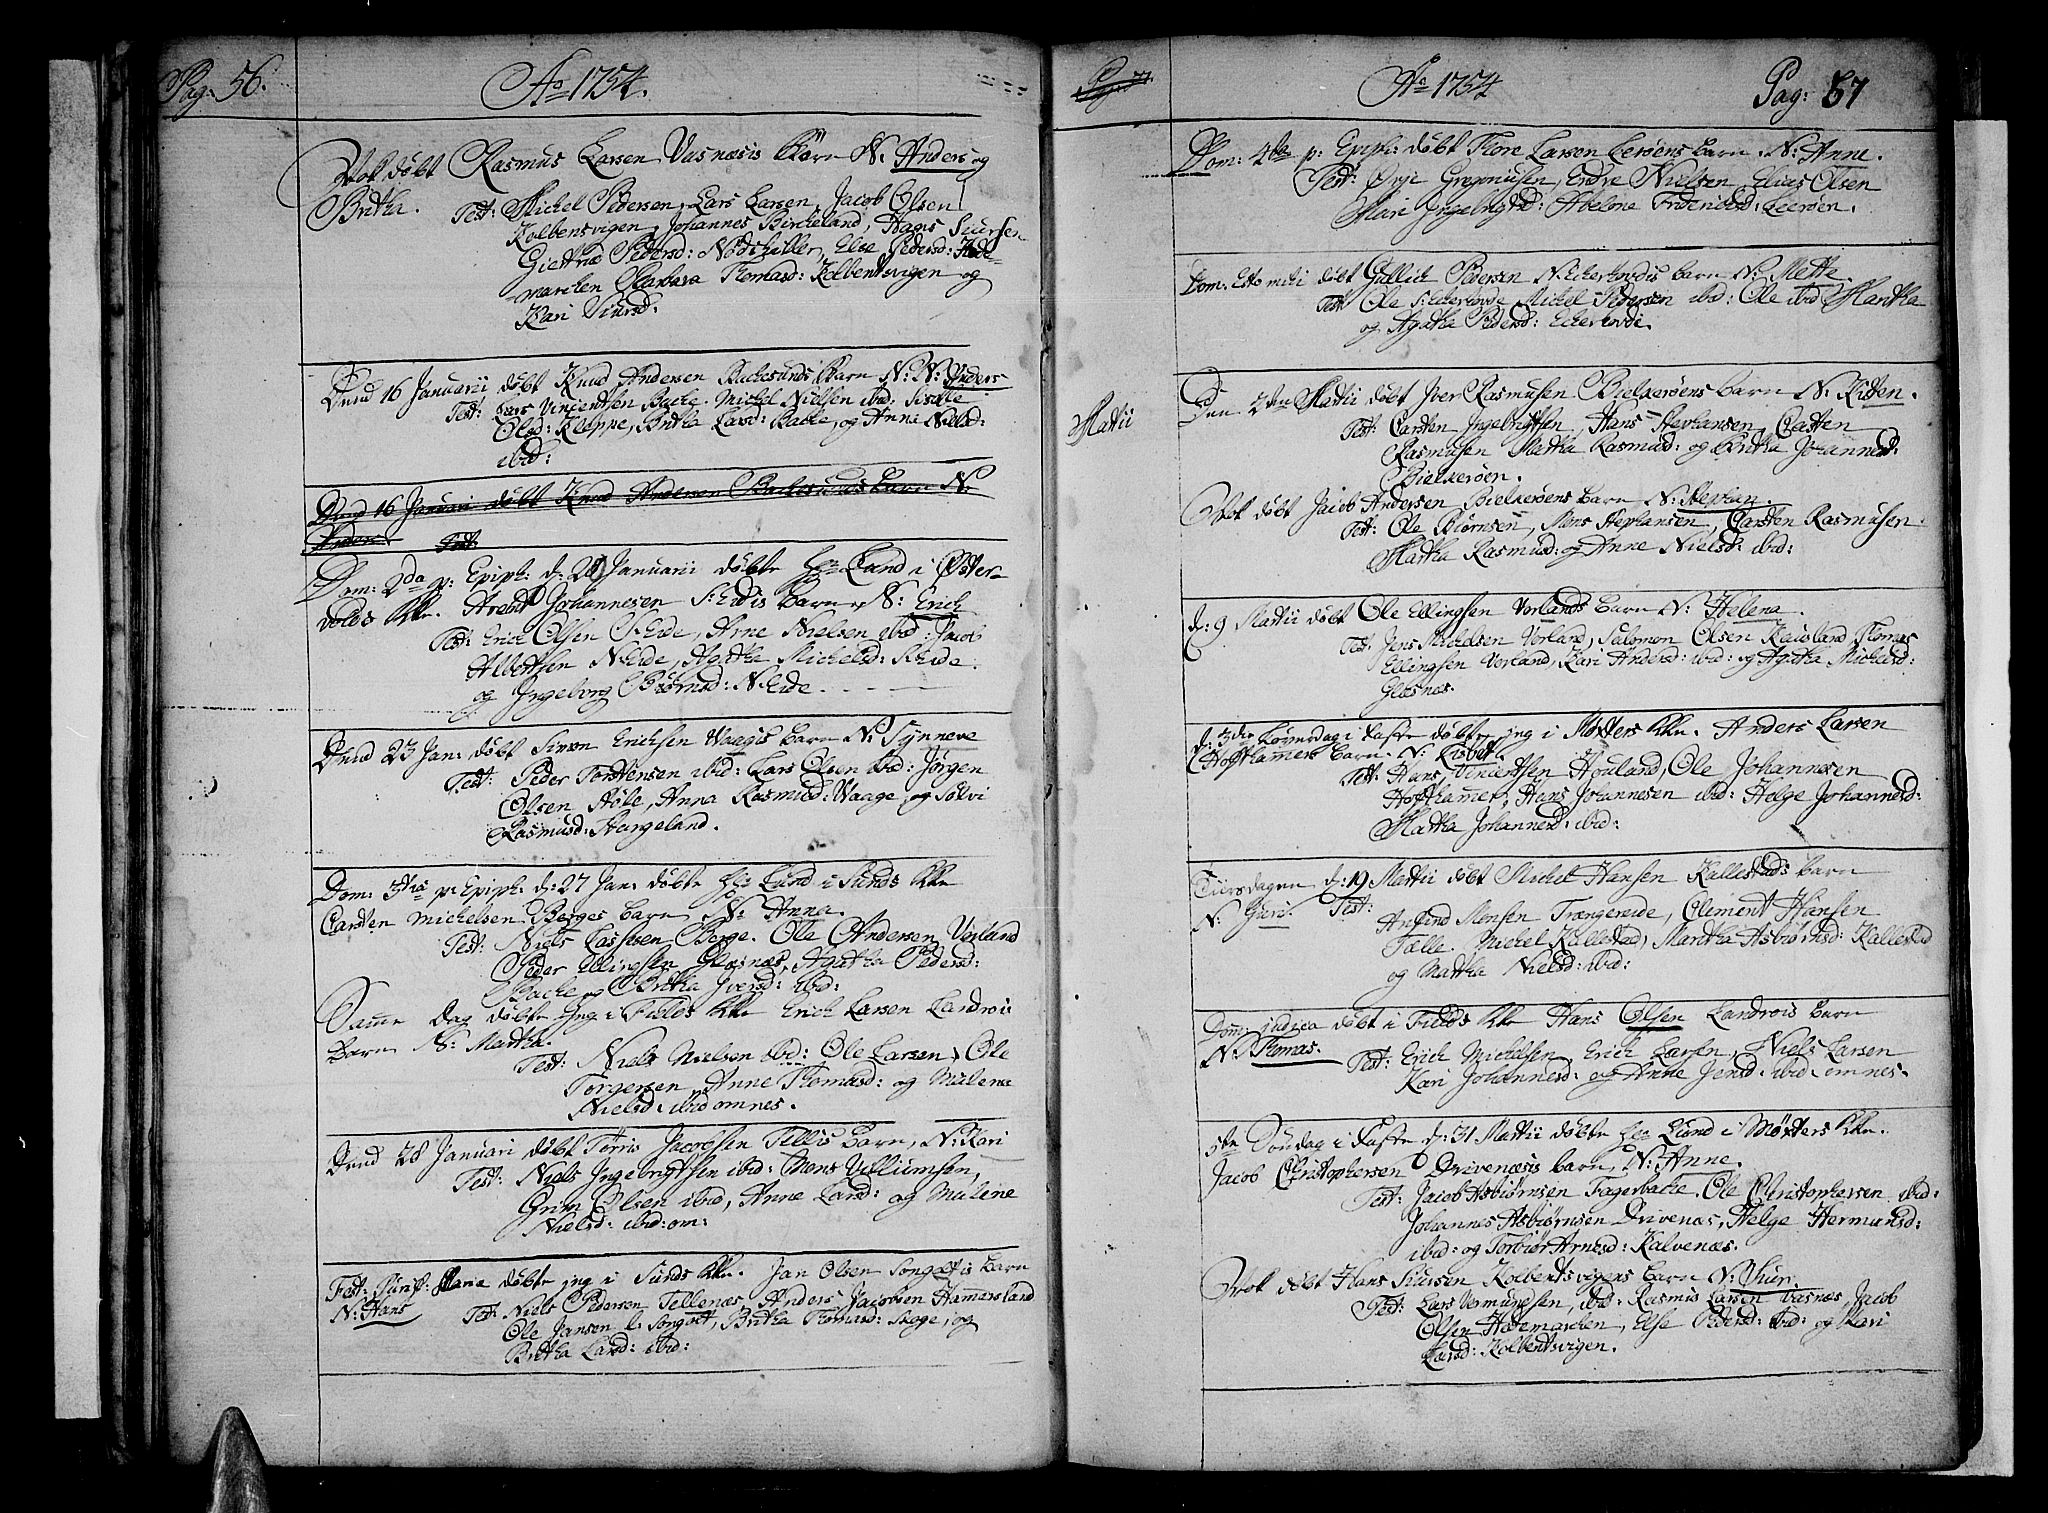 Pag: 56. Ao 1754.
Vok døbt Rasmus Larsen Vasnæsis Børn N: Anders og
Britha. Test: Michel Pedersen, Lars Larsen, Jacob Olsen
Kolbensvigen, Johannes Bircheland, Hans Siursen
Giertrud Pedersd: Nødschaller, Else Pedersd: Hade-
marchen Barbara Thomasd: Kolbentsvigen og
Kari Siursd.
Dend 16 Januarii døbt Knud Andersen Bachesunds Barn N: N: Anders
Test: Lars Vincentsen Bache. Michel Nielsen ibid: Siselle
Olsd: Kleppe, Britha Larsd: Bache, og Anna Nielsd:
ibid:
Dend 16 Januari døbt Knud Andersen Bachesunds barn N:
Anders. Test:
Dom: 2da p: Epiph: d: 20 Januarii døbte Hr: Lund i Øster-
volds Kke. Arent Johannesen S: Eidis barn N: Erich
Test: Erich Olsen S: Eide, Arne Nielsen ibid: Jacob
Albertsen N: Eide, Agatha Michelsd: S: Eide.
og Ingeborg Biørnsd: N: Eide.
Dend 23 Jan: døbt Simon Erichsen Waagis barn N: Synneve
Test: Peder Torstensen ibid: Lars Olsen ibid: Jørgen
Olsen Høle, Anna Rasmusd: Waage, og Sølvi
Rasmusd: Hargeland.
Dom: 3tia p: Epiph: d: 27 Jan: døbte Hr: Lund i Sunds Kke
Carsten Michelsen Berges barn N: Anna.
Test: Niels Lassesen Borge. Ole Andersen Vorland
Peder Ellingsen Glæsnæs, Agatha Pedersd:
Bache og Britha Iversd: ibid:
Samme Dag døbte Jeg i Fields Kke Erich Larsen Landrøis
Barn N: Martha.
Test: Niels Nielsen ibid: Ole Larsen, Ole
Torgersen, Anne Thomasd: og Malena
Nielsd: ibid omnes.
Dend 28 Januari døbt Tørris Jacobsen Tellis barn, N: Kari
Test: Niels Ingebrigtsen ibid: Mons Villumsen,
Grim Olsen ibid, Anne Larsd: og Malene
Nielsd: ibid: om:
Fest: Purif: Mariæ døbte jeg i Sunds Kke. Jan Olsen Songøtis barn
N: Hans Test: Niels Pedersen Tellenæs, Anders Jacobsen Hamersland
Ole Jansen l: Songøt, Britha Thomasd: Skoge, og
Britha Larsd: ibid:
Ao 1754 Pag: 57
Dom: 4ta p: Epiph: døbt Tore Larsen Lerøens barn. N: Anne.
Test: Ørje Gregoriusen, Endre Nielsen, Elias Olsen
Mari Ingebrigtsd: Abelone Friderichsd: Leerøen.
Dom: Esto mihi døbt Gullich Pedersen N: Eckerhovdis barn N: Mette.
Test: Ole S: Eckerhovde Michel Pedersen ibid: Ole ibid Martha
og Agatha Pedersd: Eckerhovde.
Martii
Den 2den Martii døbt Iver Rasmusen Bielkerøens barn N: Kisten.
Test: Carsten Ingebrigtsen, Hans Stephansen, Carsten
Rasmusen Martha Rasmusd: og Britha Johannesd:
Bielkerøen.
Vok døbt Jacob Andersen Bielkerøens barn N: Stephan.
Test: Ole Biørnsen, Mons Stephansen, Carsten Rasmusen
Martha Rasmusd: og Anne Nielsd: ibid:
d: 9 Martii døbt Ole Ellingsen Vorlands barn N: Helena.
Test: Jens Michelsen Vorland, Salomon Olsen Kausland Thomas
Ellingsen Vorland, Kari Andersd: ibid: og Agatha Michelsd:
Glæsnæs.
d: 3die Søndag i Faste døbte jeg i Møxters Kke. Anders Larsen
Hofthamers barn. N: Lisbet.
Test: Hans Vincentsen Houland, Ole Johannesen
Hofthamer, Hans Johannesen ibid: Helge Johannesd:
Martha Johannesd: ibid:
Tiirsdagen d: 19 Martii døbt Michel Hansen Kallestads barn
N: Guri. Test:
Anfind Monsen Trængereide, Clement Hansen
Tælle. Michel Kallestad, Martha Asbiørnsd: Kallestad
og Martha Nielsd: ibid:
Dom: judica døbt i Fields Kke Hans Olsen Landrøis barn
N: Thomas. Test: Erich Michelsen, Erich Larsen, Niels Larsen
Kari Johannesd: og Anne Jensd: ibid: omnes.
5te Søndag i Faste d: 31 Martii døbte Hr: Lund i Møxters Kke.
Jacob Christophersen Drivenæsis barn N: Anne.
Test: Jacob Asbiørnsen Fagerbache, Ole Christophersen ibid:
Johannes Asbiørnsen Drivenæs, Helge Hermundsd:
ibid: og Torbiør Arnesd: Kalvenæs.
Vok døbt Hans Siursen Kolbentsvigens barn N: Siur.
Test: Lars Vermundsen, ibid: Rasmus Larsen Vasnæs, Jacob
Olsen Hademarchen, Else Pedersd: ibid: og Kari
Larsd: Kolbentsvigen.